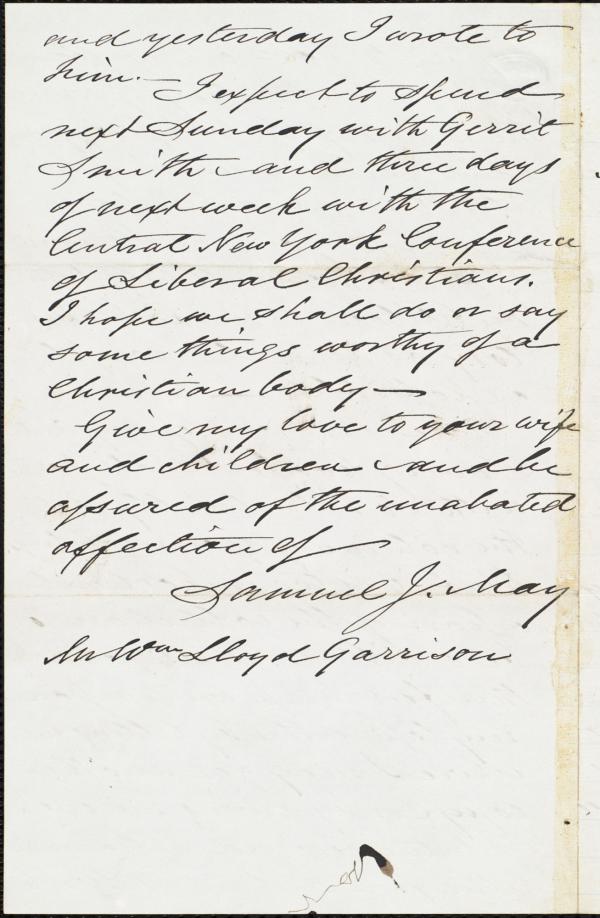 and yesterday I wrote to
him. —
I expect to spend
next Sunday with Gerrit
Smith and three days
of next week with the
Central New York Conference
of Liberal Christians.
I hope we shall do or say
some things worthy of a
Christian body —
Give my love to your wife
and children and be
assured of the unabated
affection of
Samuel J. May
Mr Wm Lloyd Garrison